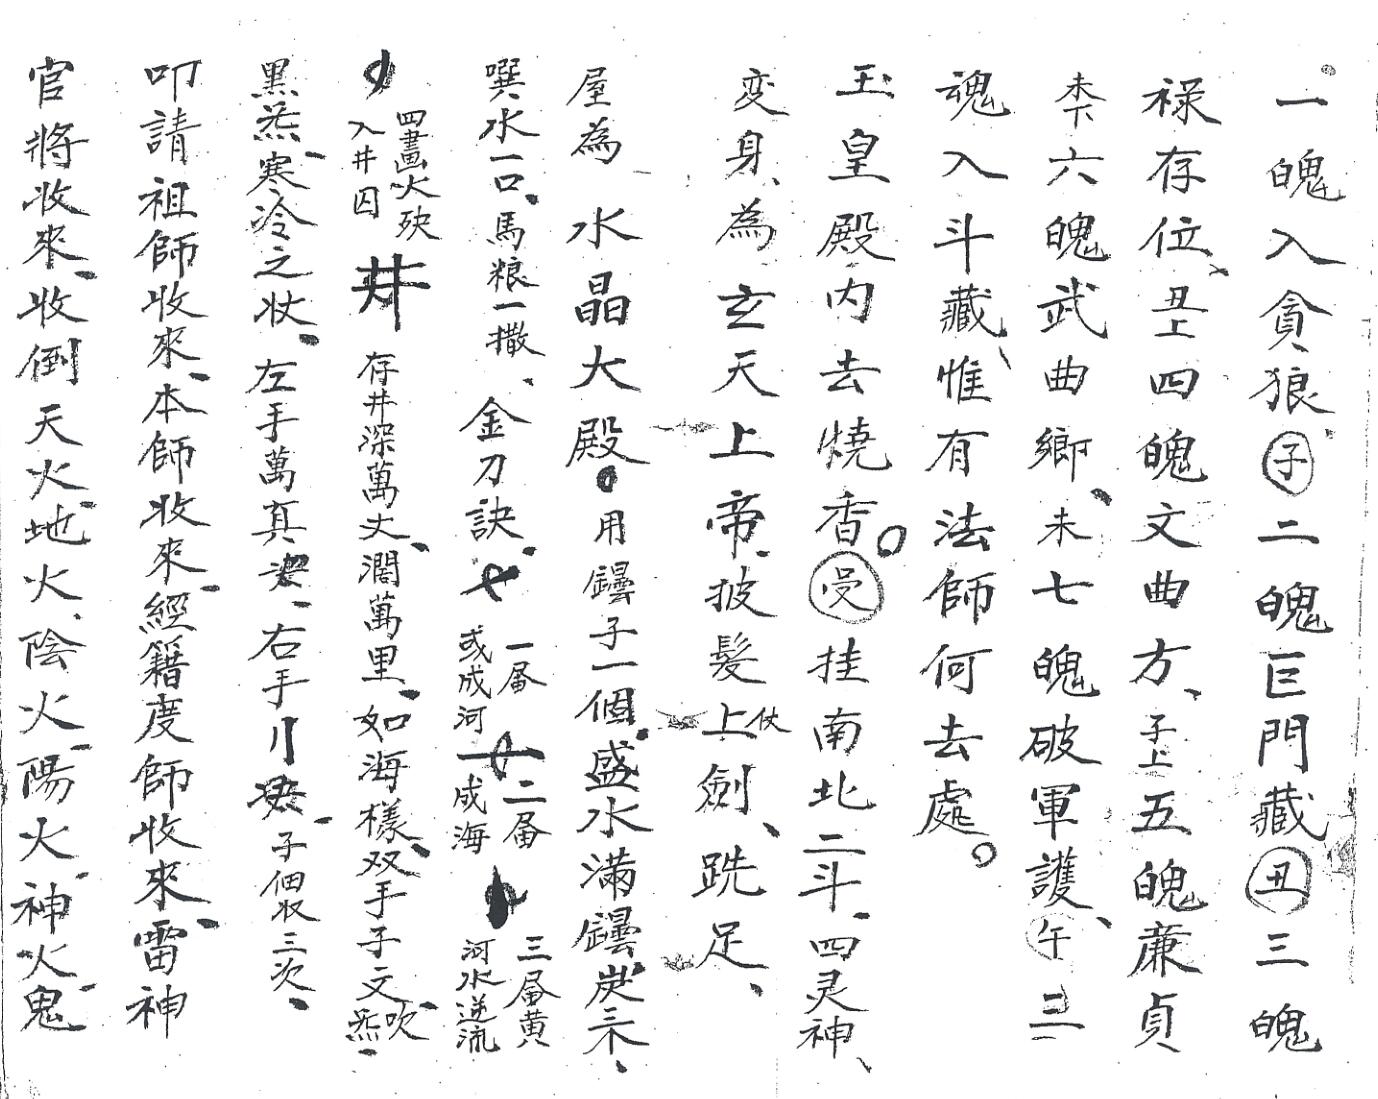 一魄入貪狼子二魄巨門藏丑三魄
祿存位丑上四魄文曲方子上五魄廉貞
六魄武曲鄉未七魄破軍護午三
魂入斗藏惟有法師何去處
玉皇殿内去燒香受挂南北二斗四灵神
変身為玄天上帝披髮上仗劍跣足
屋為水晶大殿用鐺子一個盛水滿鐺炭三米
噀水一口馬粮一撒金刀訣一届或成河二届成海三届黄河水逆流
四畫火殃入井囚井存井深萬丈濶萬里如海樣双手子文吹炁
黑炁寒冷之状左手萬真右手子佃收三次
叩請祖師收來本師收來經籍度師收來雷神
官將收來收倒天火地火陰火陽火神火鬼